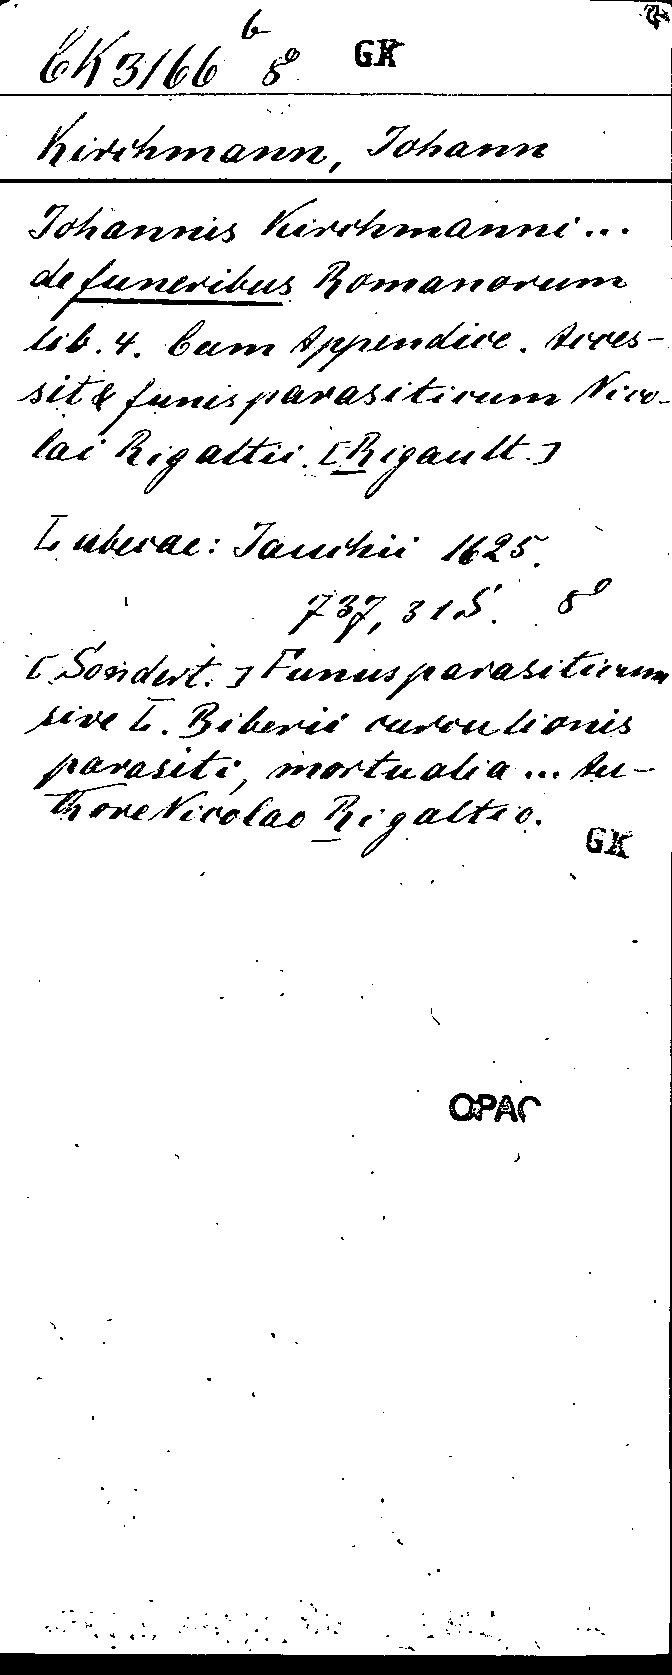 CK 3166 b 8° GK
Kirchmann, Johann
Johannis Kirchmanni...
de funeribus Romanorum
lib. 4. Cum Appendice. Acces-
sit & funis parasiticum Nico-
lai Rigaltii. [Rigault.]
Lubecae: Jauchii 1625.
737, 31 S. 8°
[Sondert.] Funus parasiticum
sive L. Biberii curculionis
parasiti, mortualia... Au-
thore Nicolao Rigaltio.
GK
OPAC